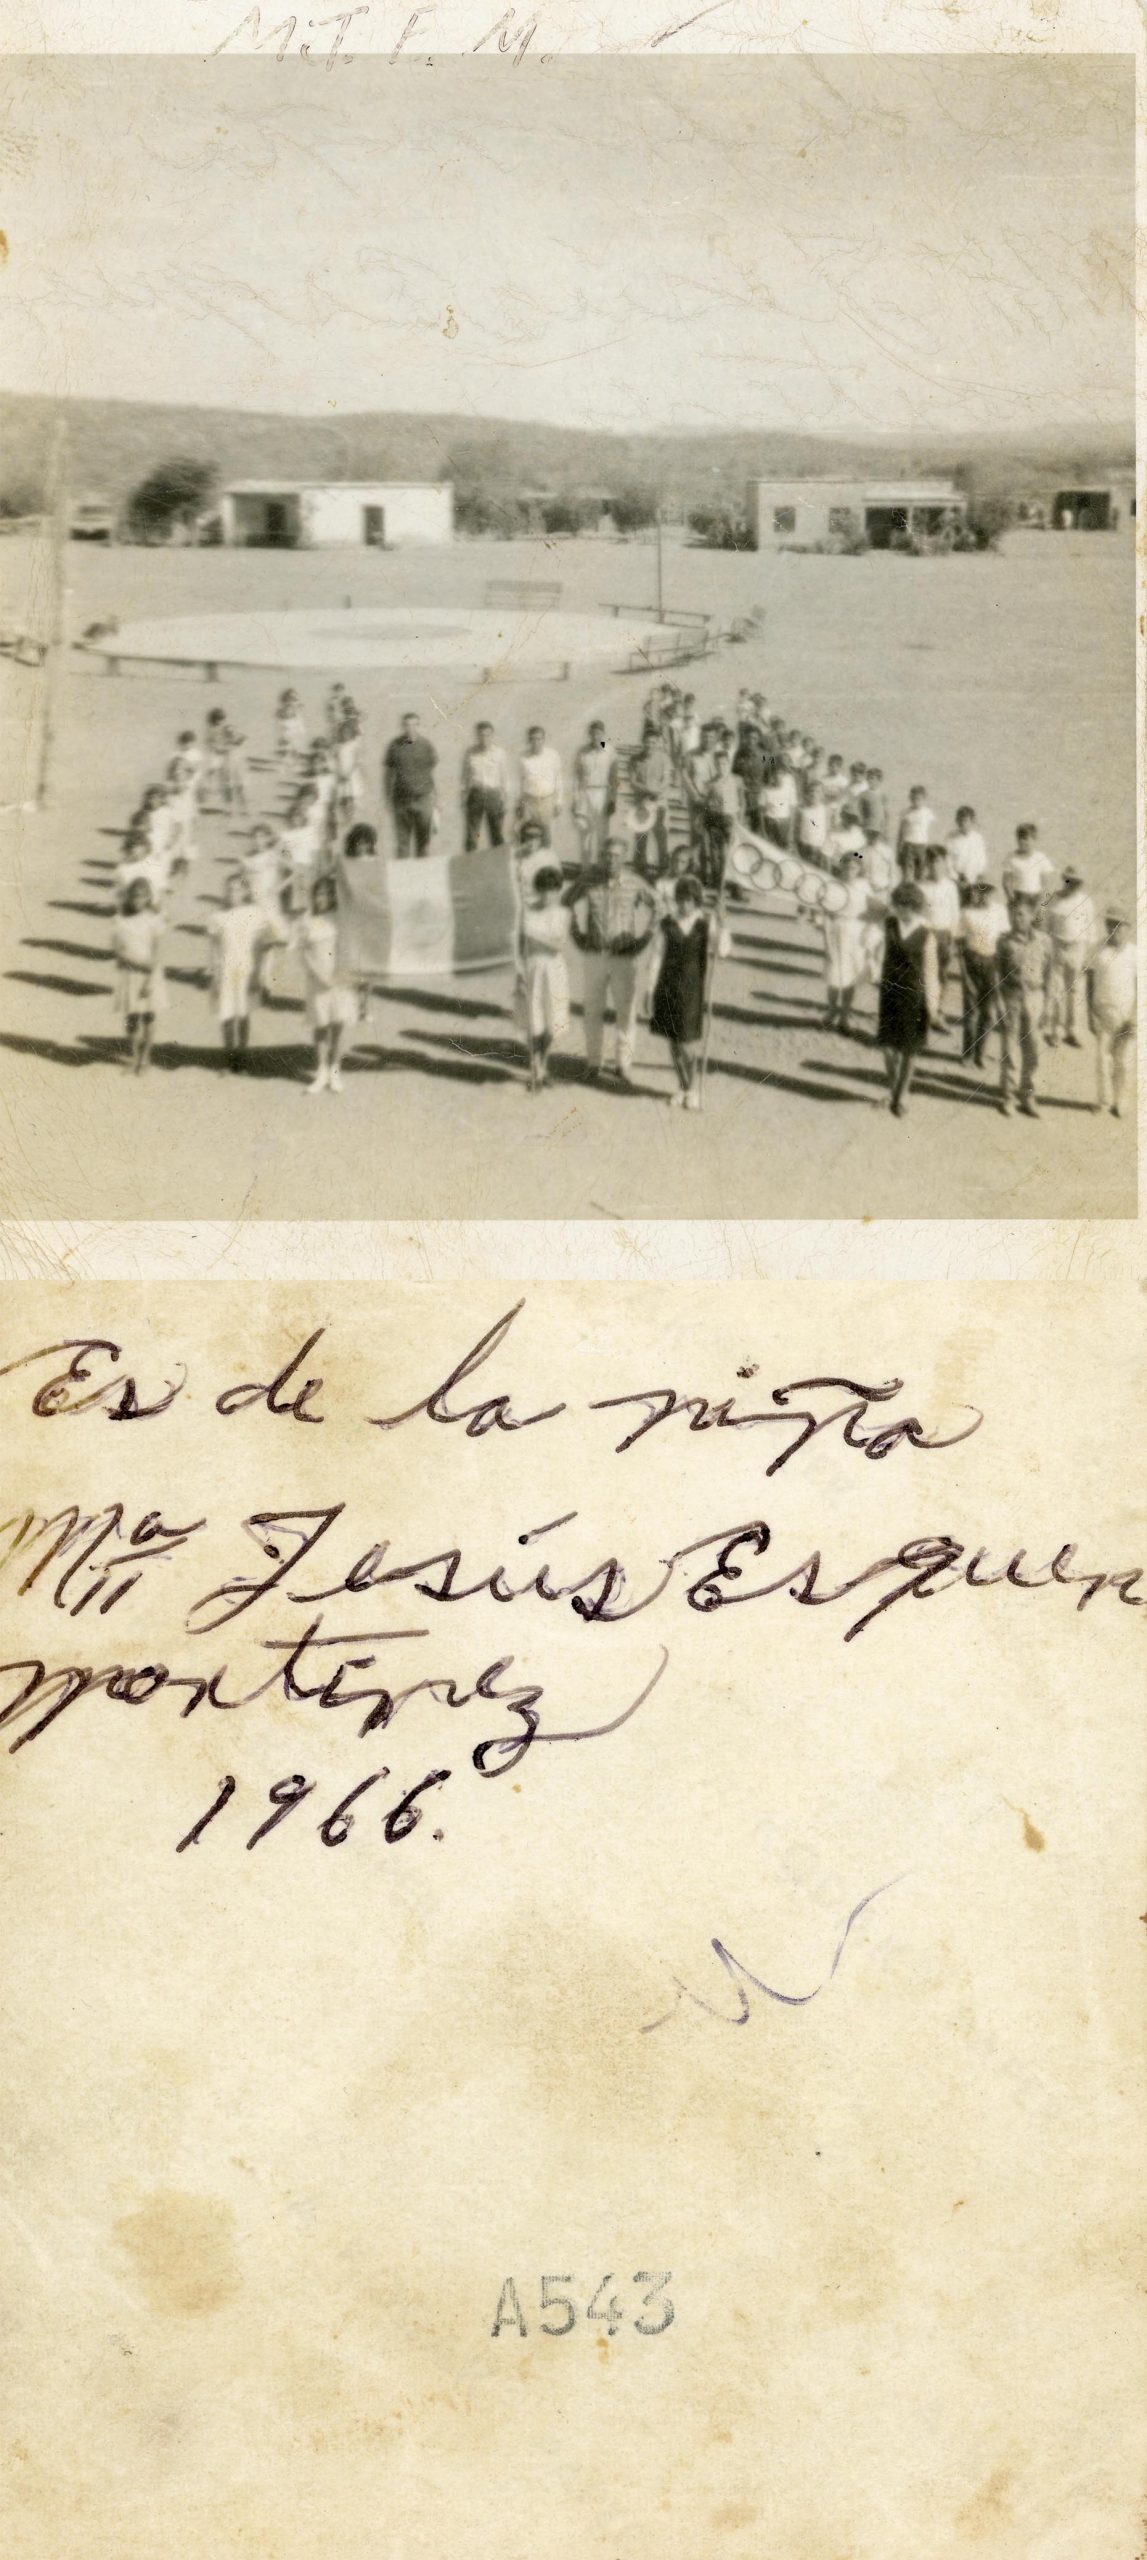 M.T. F. M.
Es de la niña
Mª Jesús Esquer
Montinez
1966.
A543